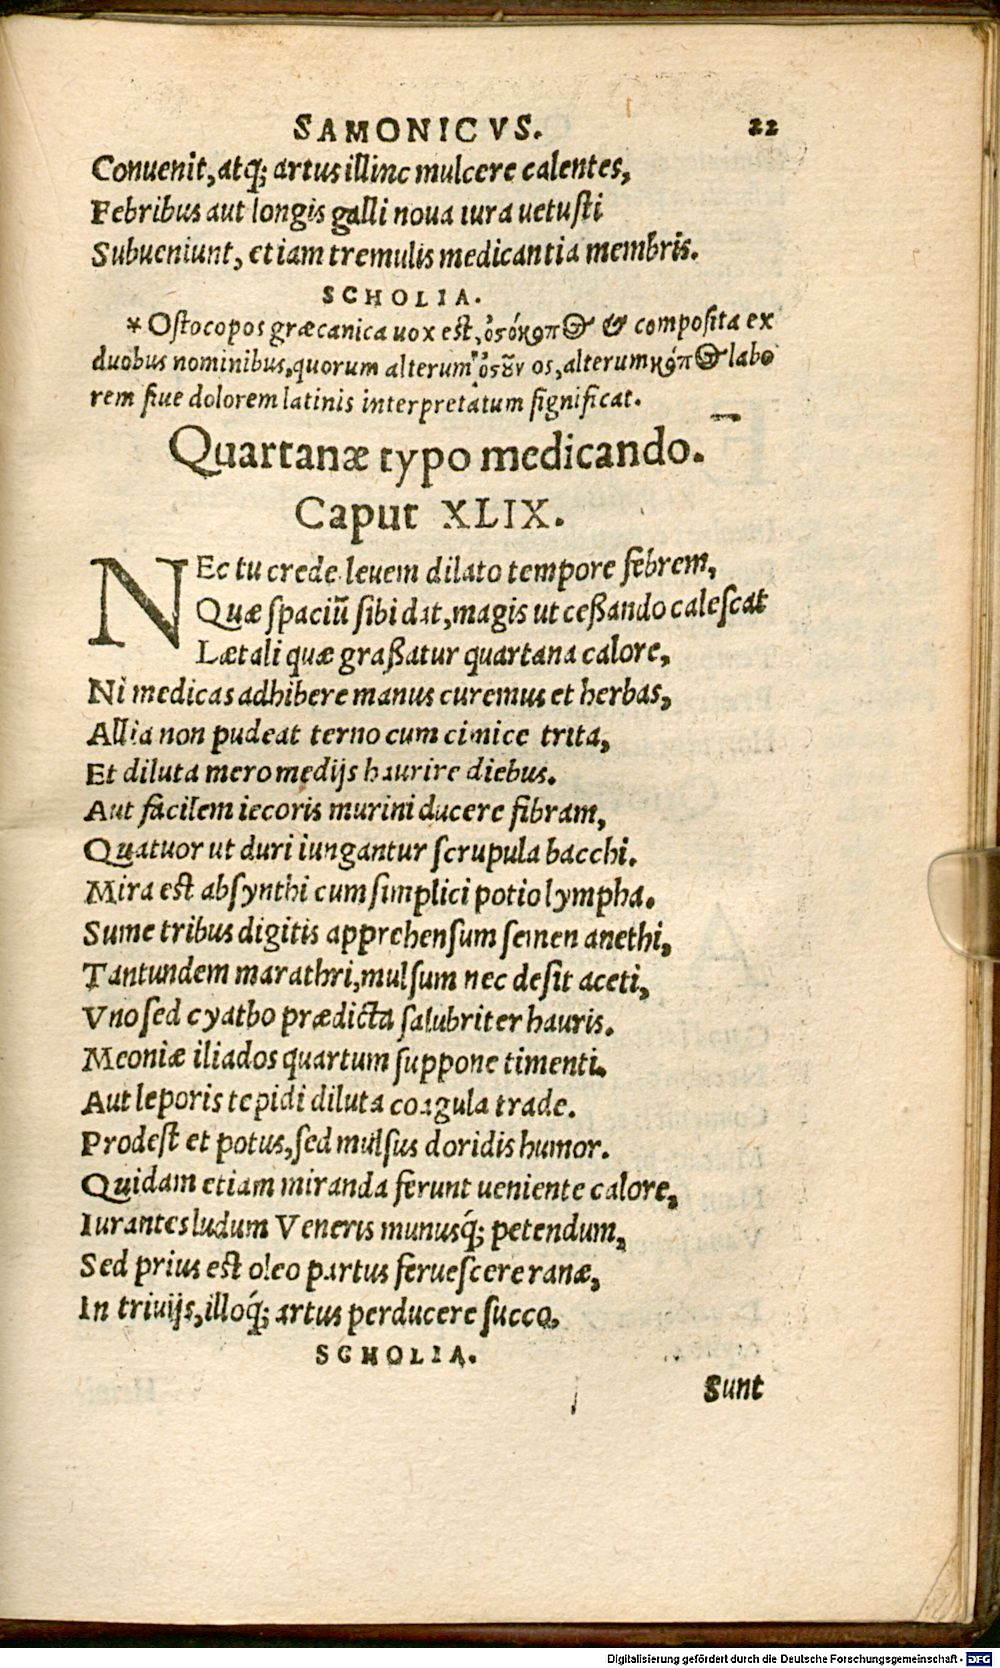 SAMONICVS. 22
Conuenit, atq́; artus illinc mulcere calentes,
Febribus aut longis galli noua iura uetusti
Subueniunt, etiam tremulis medicantia membris.
SCHOLIA.
* Ostocopos græcanica uox est, ὀστόκοπος & composita ex
duobus nominibus, quorum alterum ὀστοῦν os, alterum κόπος labo
rem siue dolorem latinis interpretatum significat.
Quartanæ typo medicando.
Caput XLIX.
NEc tu crede leuem dilato tempore febrem,
Quæ spaciũ sibi dat, magis ut ceßando calescat
Lætali quæ graßatur quartana calore,
Ni medicas adhibere manus curemus et herbas,
Allia non pudeat terno cum cimice trita,
Et diluta mero medijs haurire diebus.
Aut facilem iecoris murini ducere fibram,
Quatuor ut duri iungantur scrupula bacchi.
Mira est absynthi cum simplici potio lympha.
Sume tribus digitis apprehensum semen anethi,
Tantundem marathri, mulsum nec desit aceti,
Vno sed cyatho prædicta salubriter hauris.
Meoniæ iliados quartum suppone timenti.
Aut leporis tepidi diluta coagula trade.
Prodest et potus, sed mulsus doridis humor.
Quidam etiam miranda ferunt ueniente calore,
Iurantes ludum Veneris munusq́; petendum,
Sed prius est oleo partus feruescere ranæ,
In triuijs, illoq́; artus perducere succo.
SCHOLIA.
Sunt
Digitalisierung gefördert durch die Deutsche Forschungsgemeinschaft - DFG